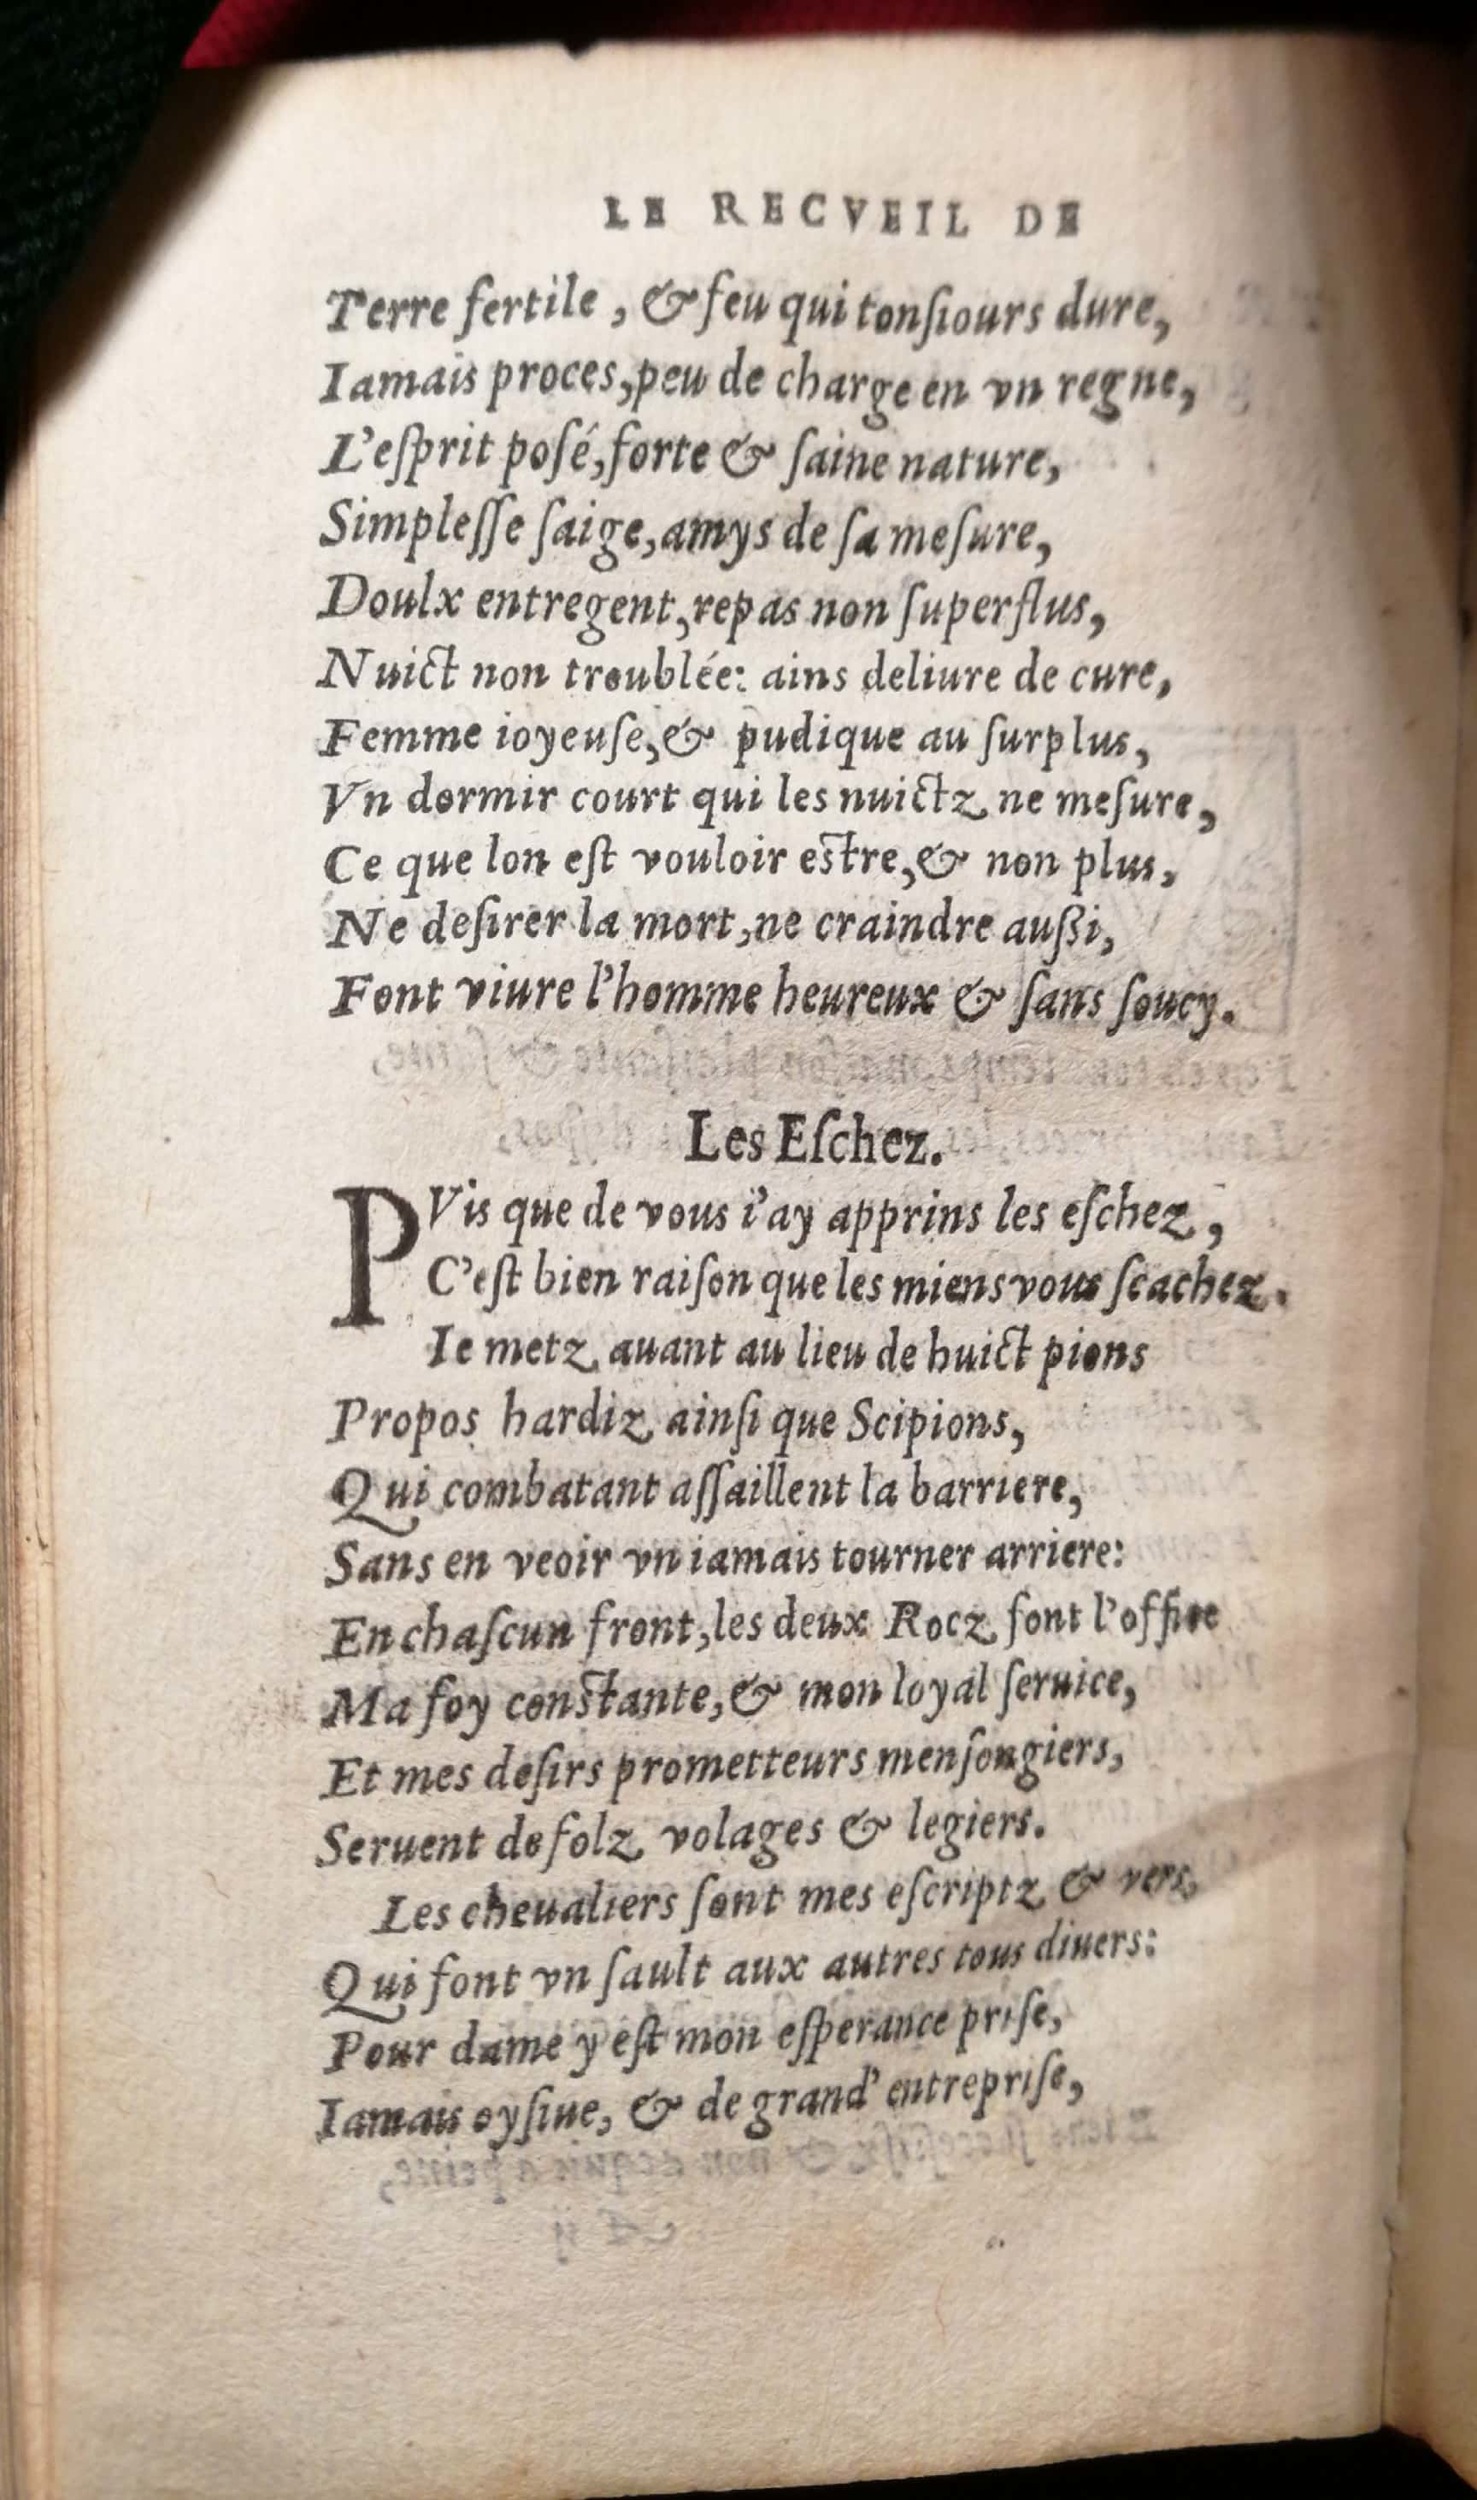 LE RECVEIL DE
Terre fertile, & feu qui tonſiours dure,
Iamais proces, peu de charge en vn regne,
L'eſprit poſé, forte & ſaine nature,
Simpleſſe ſaige, amys de ſa meſure,
Doulx entregent, repas non ſuperflus,
Nuict non troublée: ains deliure de cure,
Femme ioyeuſe, & pudique au ſurplus,
Vn dormir court qui les nuictz ne meſure,
Ce que lon eſt vouloir eſtre, & non plus,
Ne deſirer la mort, ne craindre auſſi,
Font viure l'homme heureux & ſans ſoucy.
Les Eſchez.
PVis que de vous i'ay apprins les eſchez,
C'eſt bien raiſon que les miens vous ſcachez.
Ie metz auant au lieu de huict pions
Propos hardiz ainſi que Scipions,
Qui combatant aſſaillent la barriere,
Sans en veoir vn iamais tourner arriere:
En chaſcun front, les deux Rocz font l'office
Ma foy conſtante, & mon loyal ſeruice,
Et mes deſirs prometteurs menſongiers,
Seruent de folz volages & legiers.
Les cheualiers ſont mes eſcriptz & vers,
Qui font vn ſault aux autres tous diuers:
Pour dame y eſt mon eſperance priſe,
Iamais oyſiue, & de grand' entrepriſe,